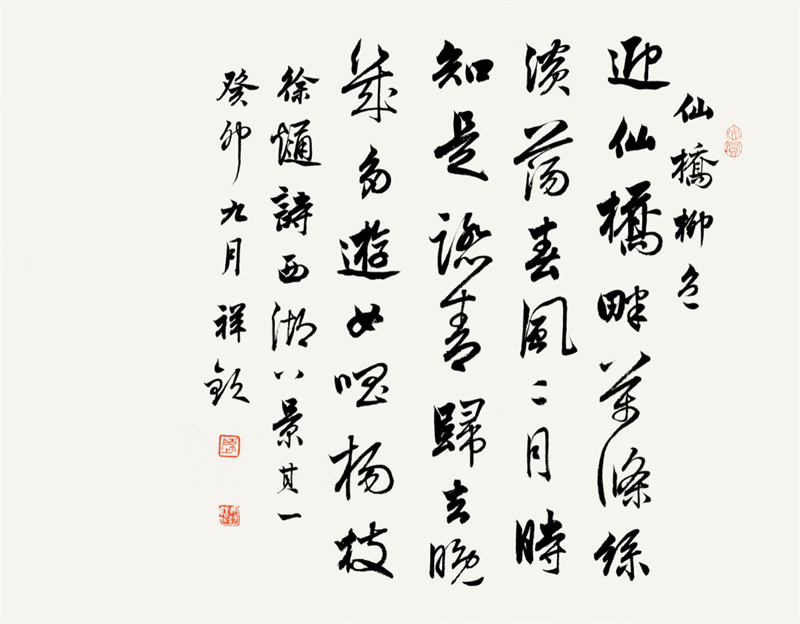 仙橋柳色
迎仙橋畔萬條絲
淡蕩春風二月時
知是踏青歸去晚
幾多遊女唱楊枝
徐𤊹詩西湖八景其一
癸卯九月祥欽